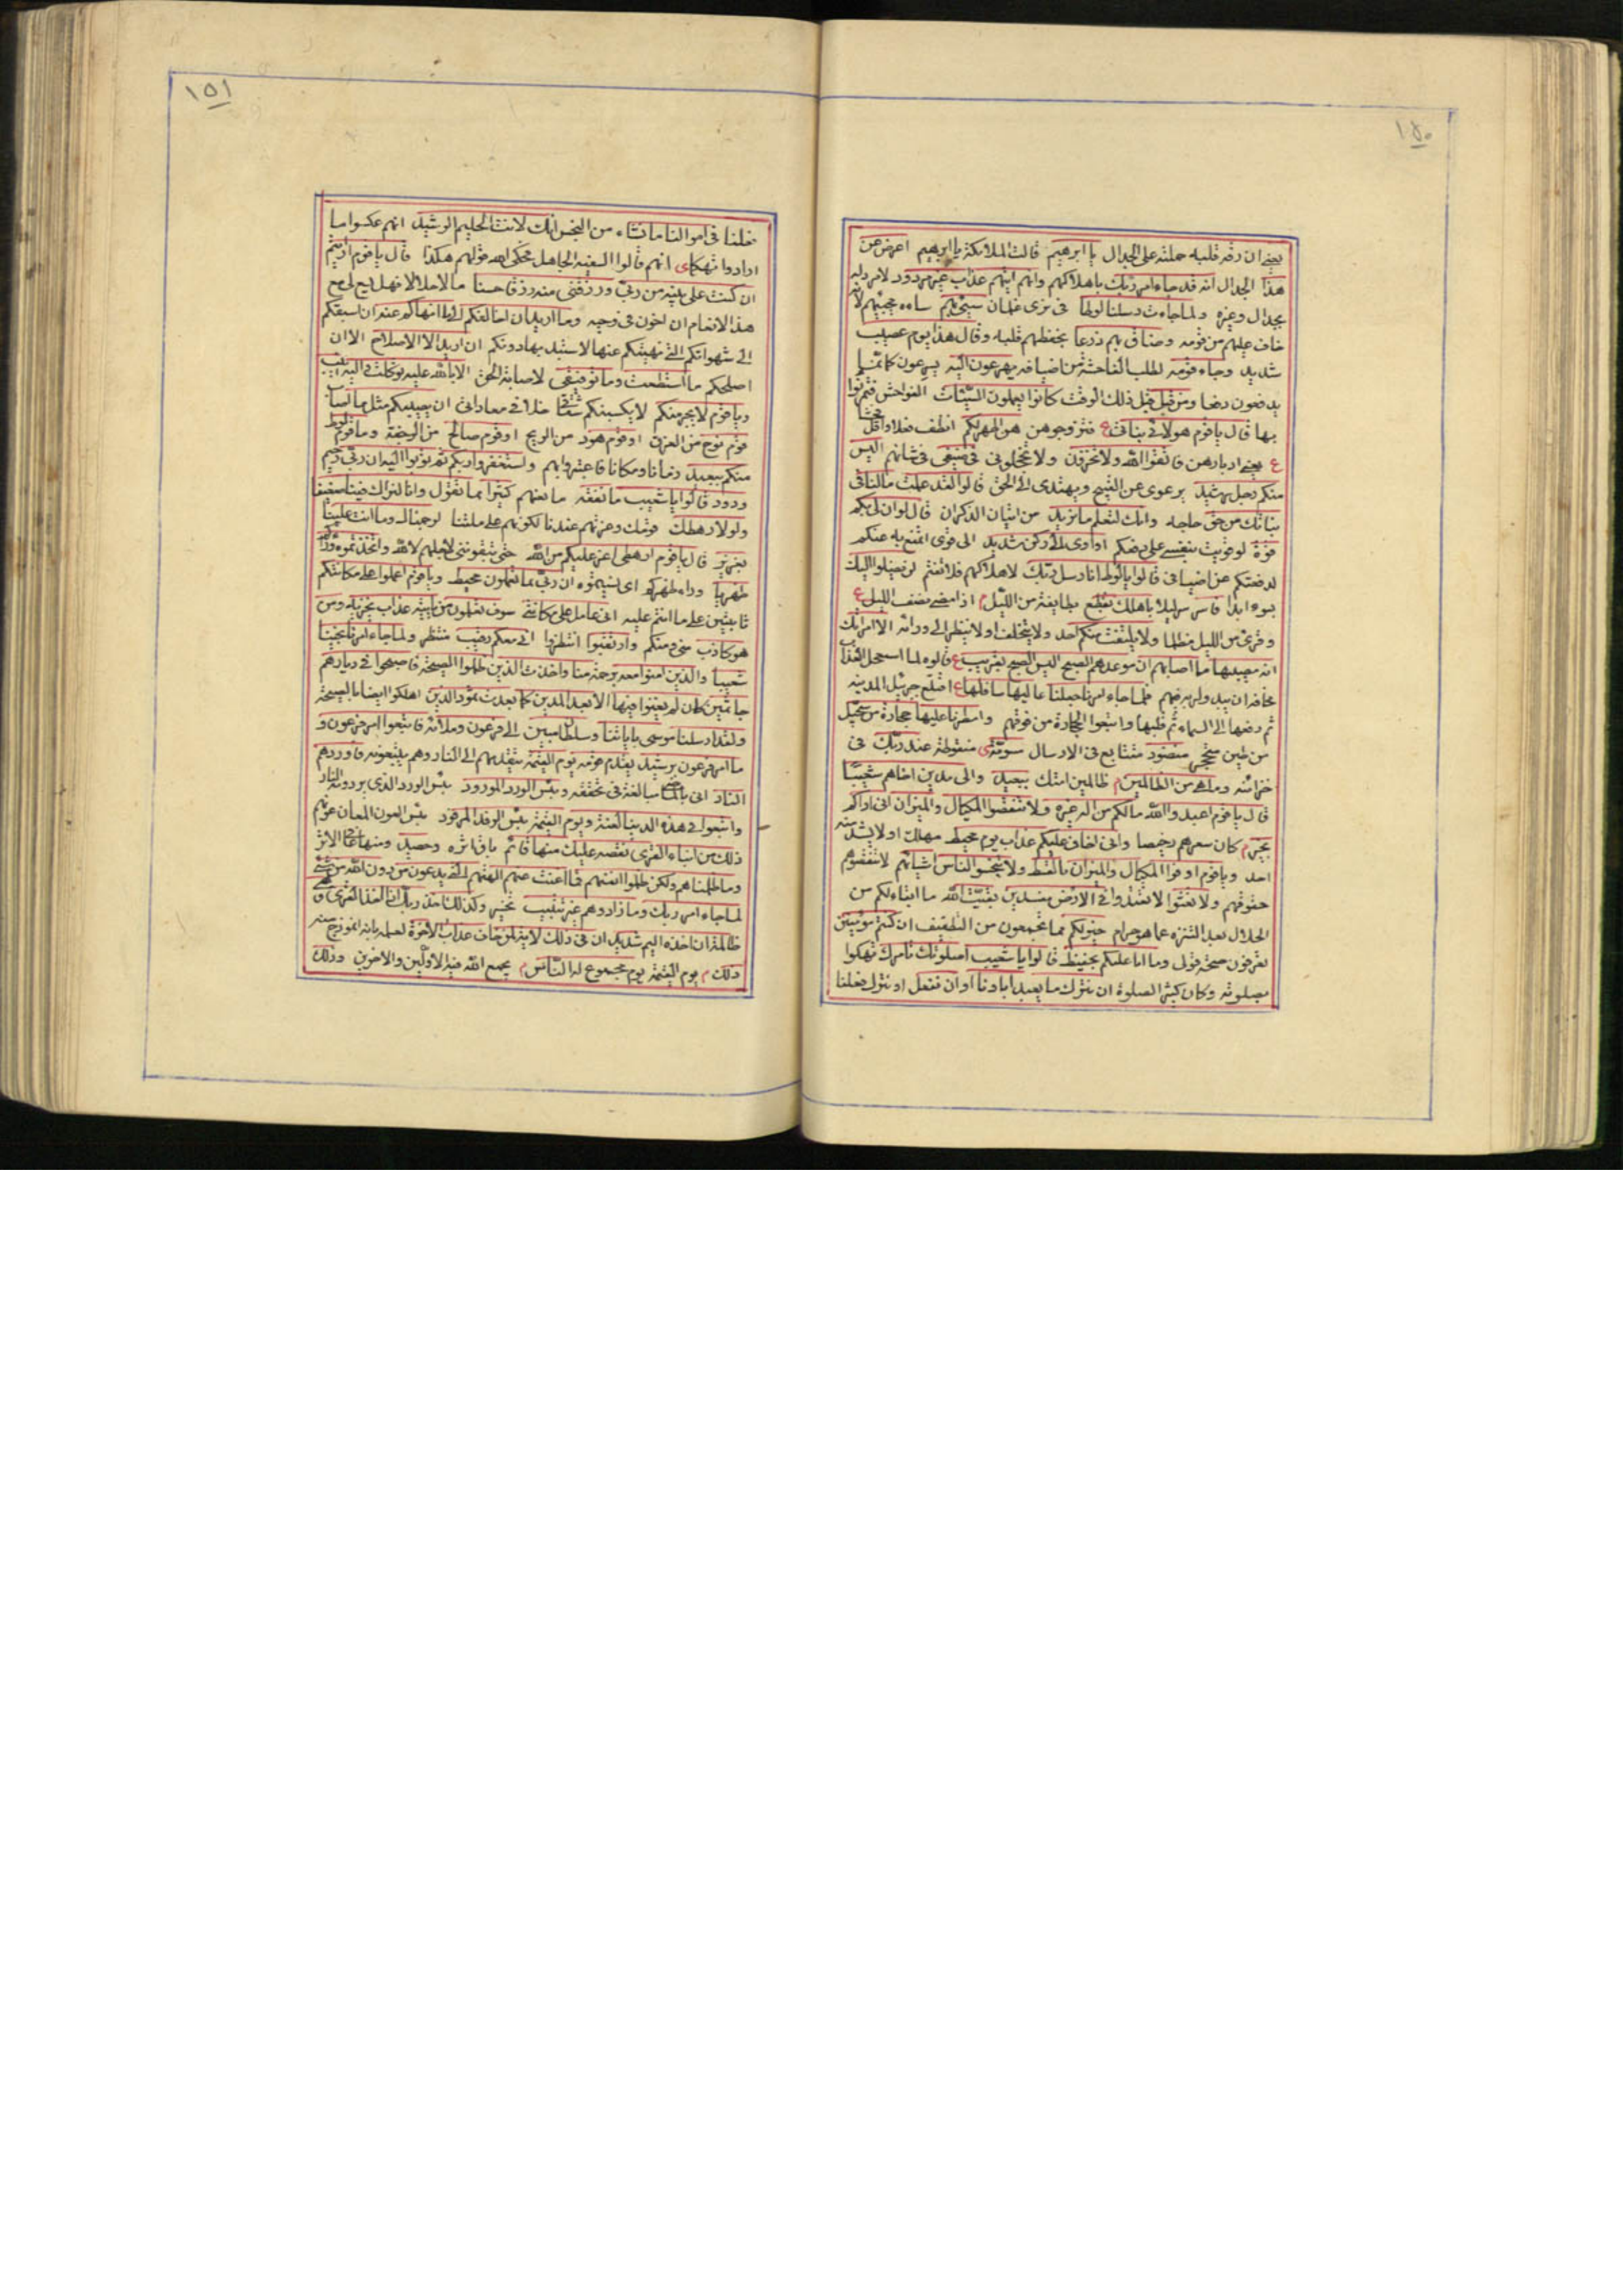 ١٥٠
يعني ان رقة قلبه حملته على الجدال يا ابرهيم قالت الملائكة يا ابرهيم اعرض عن
هذا الجدال انه قد جاء امر ربك باهلاكهم وانهم اتيهم عذاب غير مردود لا مرد له
بجدال وغيره ولما جاءت رسلنا لوطا في زي غلمان سيئ بهم ساءه مجيئهم لانه
خاف عليهم من قومه وضاق بهم ذرعا بحفظهم قلبه وقال هذا يوم عصيب
شديد وجاء قومه لطلب الفاحشة من اضيافه يهرعون اليه يسرعون كانما
يدفعون دفعا ومن قبل قبل ذلك الوقت كانوا يعملون السيئات الفواحش فتمرنوا
بها قال يا قوم هولاء بناتي فتزوجوهن هن اطهر لكم انظف فعلا واقل فحشا
ع يعني ادبارهن فاتقوا الله ولا تخزون ولا تخجلوني في ضيفي في شانهم اليس
منكم رجل رشيد يرعوى عن القبيح ويهتدى الى الحق قالوا لقد علمت مالنا في
بناتك من حق حاجه وانك لتعلم ما نريد من اتيان الذكران قال لو ان لي بكم
قوة لو قويت بنفسي على دفعكم او اوى الى ركن شديد الى قوى اتمنع به عنكم
لدفعتكم عن اضيافي قالوا يا لوط انا رسل ربك لاهلاكهم فلا تغتم لن يصلوا اليك
بسوء ابدا فاسر سر ليلا باهلك بقطع بطايفة من الليل م اذا مضى نصف الليل ع
وقرئ من الليل مظلما ولا يلتفت منكم احد ولا يتخلف او لا ينظر الى ورائه الا امراتك
انه مصيبها ما اصابهم ان موعدهم الصبح اليس الصبح بقريب ع قالوه لما استعجل العذاب
مخافة ان يبدو لربه فيهم فلما جاء امرنا جعلنا عاليها سافلها ع اقتلع جبرئيل المدينه
ثم رفعها الى السماء ثم قلبها واتبعوا الحجارة من فوقهم وامطرنا عليها حجارة من سجيل
من طين متحجر منضود متتابع في الارسال مسومة ى منقوطة عند ربك في
خزائنه وما هي من الظالمين م ظالمين امتك ببعيد والى مدين اخاهم شعيبا
قال يا قوم اعبدوا الله مالكم من اله غيره ولا تنقصوا المكيال والميزان اني اراكم
بخير م كان سعرهم رخيصا واني اخاف عليكم عذاب يوم محيط مهلك او لا يشذ منه
احد ويا قوم اوفوا المكيال والميزان بالقسط ولا تبخسوا الناس اشيائهم لا تنقصوهم
حقوقهم ولا تعثوا لا تفسدوا في الارض مفسدين بقيت الله ما ابقاه لكم من
الحلال بعد التنزه عما هو حرام خير لكم مما تجمعون من التطفيف ان كنتم مؤمنين
تعرفون صحة قولي وما انا عليكم بحفيظ قالوا يا شعيب اصلوتك تامرك تهكموا
بصلوته وكان كثير الصلوة ان نترك ما يعبد اباؤنا او ان نفعل او نترك فعلنا
١٥١
فعلنا في اموالنا ما نشاء من البخس انك لانت الحليم الرشيد انهم عكسوا ما
ارادوا تهكما ى انهم قالوا السفيه الجاهل فحكى الله قولهم هكذا قال يا قوم ارايتم
ان كنت على بينة من ربي ورزقني منه رزقا حسنا مالا حلالا فهل يسع لي مع
هذا الانعام ان اخون في وحيه وما اريد ان اخالفكم الى ما انهاكم عنه ان اسبقكم
الى شهواتكم التي نهيتكم عنها لاستبد بها دونكم ان اريد الا الاصلاح الا ان
اصلحكم ما استطعت وما توفيقي لاصابة الحق الا بالله عليه توكلت واليه انيب
ويا قوم لا يجرمنكم لا يكسبنكم شقاقي خلافي معاداتي ان يصيبكم مثل ما اصاب
قوم نوح من الغرق او قوم هود من الريح او قوم صالح من الرجفة وما قوم لوط
منكم ببعيد زمانا ومكانا فاعتبروا بهم واستغفروا ربكم ثم توبوا اليه ان ربي رحيم
ودود قالوا يا شعيب ما نفقه ما نفهم كثيرا مما تقول وانا لنراك فينا ضعيفا
ولولا رهطك قومك وعزتهم عندنا لكونهم على ملتنا لرجمناك وما انت علينا
بعزيز قال يا قوم ارهطي اعز عليكم من الله حتى تبقوني لاجلهم لا لله واتخذتموه وراكم
ظهريا وراء ظهركم اى نسيتموه ان ربي بما تعملون محيط ويا قوم اعملوا على مكانتكم
ثابتين على ما انتم عليه اني عامل على مكانتي سوف تعلمون من ياتيه عذاب يخزيه ومن
هو كاذب مني ومنكم وارتقبوا انتظروا اني معكم رقيب منتظر ولما جاء امرنا نجينا
شعيبا والذين امنوا معه برحمة منا واخذت الذين ظلموا الصيحة فاصبحوا في ديارهم
جاثمين كان لم يغنوا فيها الا بعدا لمدين كما بعدت ثمود الذين اهلكوا ايضا بالصيحة
ولقد ارسلنا موسى باياتنا وسلطان مبين الى فرعون وملائه فاتبعوا امر فرعون و
ما امر فرعون برشيد يقدم قومه يوم القيمة يتقدمهم الى النار وهم يتبعونه فاوردهم
النار اتى بالماضي مبالغة في تحققه وبئس الورد المورود بئس الورد الذي يردونه النار
واتبعوا في هذه الدنيا لعنة ويوم القيمة بئس الرفد المرفود بئس العون المعان عونهم
ذلك من انباء القرى نقصه عليك منها قائم باق اثره وحصيد ومنها عافي الاثر
وما ظلمناهم ولكن ظلموا انفسهم فما اغنت عنهم الهتهم التي يدعون من دون الله من شئ
لما جاء امر ربك وما زادوهم غير تتبيب تخسير وكذلك اخذ ربك اذا اخذ القرى وهي
ظالمة ان اخذه اليم شديد ان في ذلك لاية لمن خاف عذاب الاخرة لعلمه بانه انموذج منه
ذلك م يوم القيمة يوم مجموع له الناس م يجمع الله فيه الاولين والاخرين وذلك